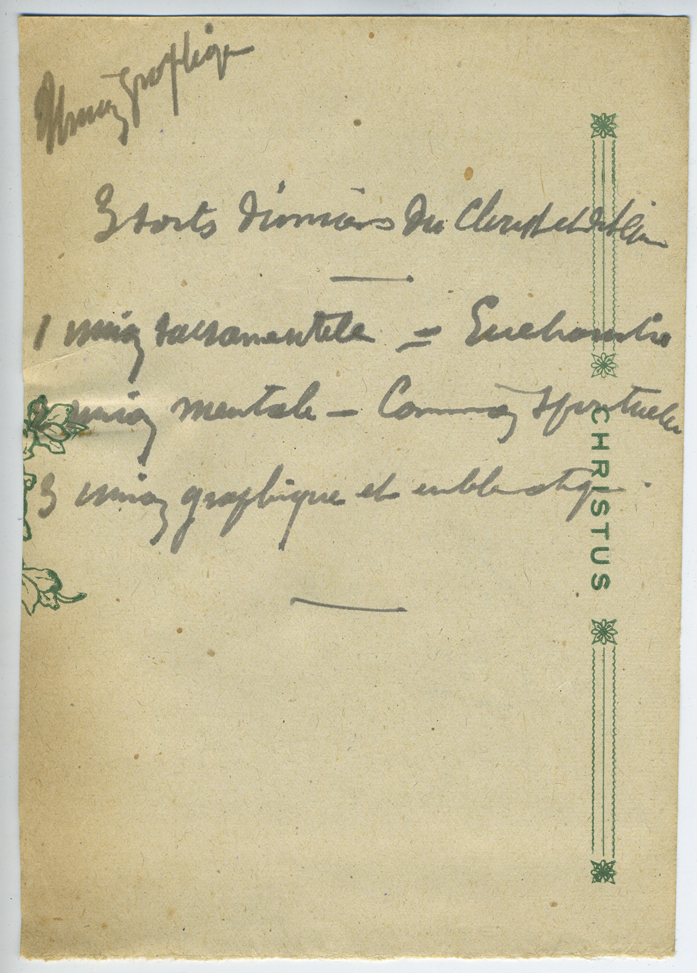 Union graphique
3 sortes d'unions du Christ et de l'âme
1 union sacramentelle = Eucharistie
2 union mentale – Communion spirituelle
3 union graphique et emblématique.
CHRISTUS